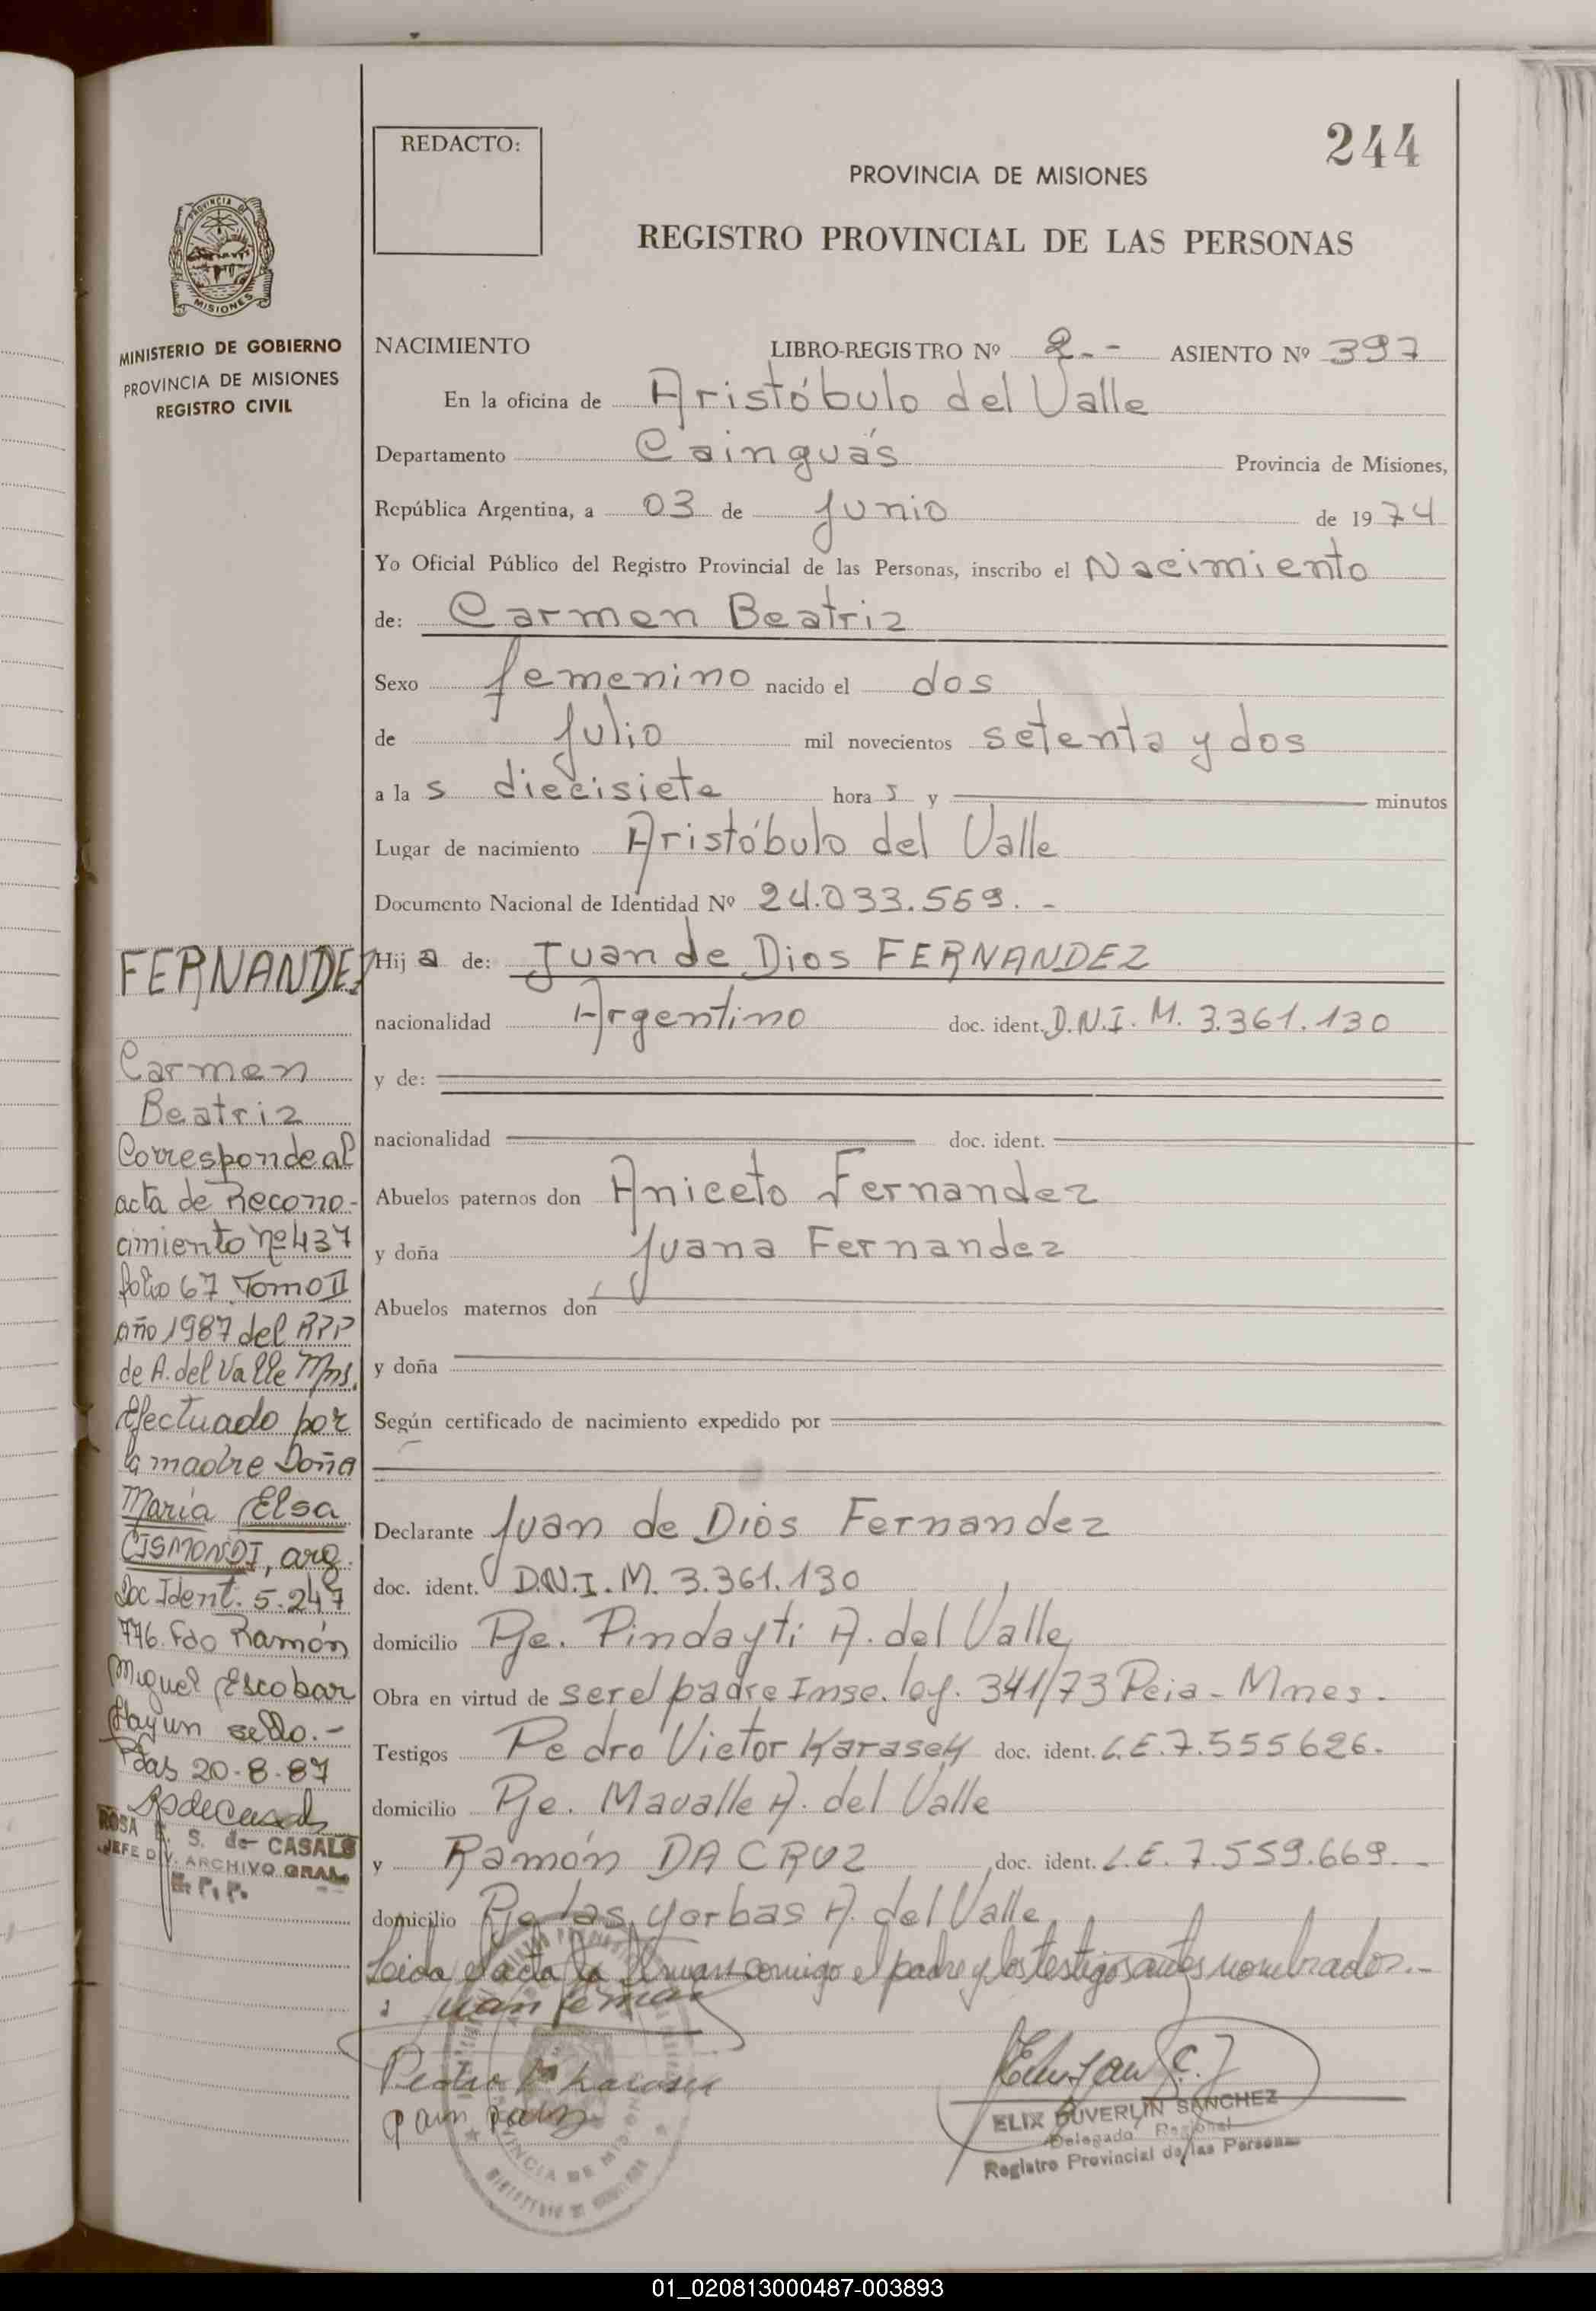 REDACTO:
244
PROVINCIA DE MISIONES
REGISTRO PROVINCIAL DE LAS PERSONAS
PROVINCIA DE
MISIONES
MINISTERIO DE GOBIERNO
PROVINCIA DE MISIONES
REGISTRO CIVIL
NACIMIENTO LIBRO-REGISTRO Nº 2.- ASIENTO Nº 397
En la oficina de Aristóbulo del Valle
Departamento Cainguás Provincia de Misiones,
República Argentina, a 03 de Junio de 1974
Yo Oficial Público del Registro Provincial de las Personas, inscribo el Nacimiento
de: Carmen Beatriz
Sexo femenino nacido el dos
de Julio mil novecientos setenta y dos
a la s diecisiete hora s y minutos
Lugar de nacimiento Aristóbulo del Valle
Documento Nacional de Identidad Nº 24.033.569.-
Hij a de: Juan de Dios FERNANDEZ
nacionalidad Argentino doc. ident. D.N.I. M. 3.361.130
y de:
nacionalidad doc. ident.
Abuelos paternos don Aniceto Fernandez
y doña Juana Fernandez
Abuelos maternos don
y doña
Según certificado de nacimiento expedido por
Declarante Juan de Dios Fernandez
doc. ident. D.N.I. M. 3.361.130
domicilio Pje. Pindayti A. del Valle
Obra en virtud de ser el padre Insc. ley. 341/73 Pcia - Mnes.
Testigos Pedro Victor Karasek doc. ident. L.E. 7.555626.
domicilio Pje. Mavalle A. del Valle
y Ramón DA CRUZ doc. ident. L.E. 7.559.669.-
domicilio Pje las yerbas A. del Valle
Leida el acta la firman conmigo el padre y los testigos antes nombrados.-
FERNANDEZ
Carmen
Beatriz
Corresponde al
acta de Recono-
cimiento nº 437
folio 67 Tomo II
año 1987 del RPP
de A. del Valle Mns.
Efectuado por
la madre Doña
María Elsa
CISMONDI, arg.
Doc Ident. 5.247
776. Fdo Ramón
Miguel Escobar
Hay un sello.-
Pdas 20-8-87
ROSA E. S. de CASALS
JEFE DIV. ARCHIVO GRAL.
R. P. P.
Juan Fernan
Pedro V Karasek
ELIX DUVERLIN SANCHEZ
Delegado Regional
Registro Provincial de las Personas
PROVINCIA DE MISIONES
01_020813000487-003893